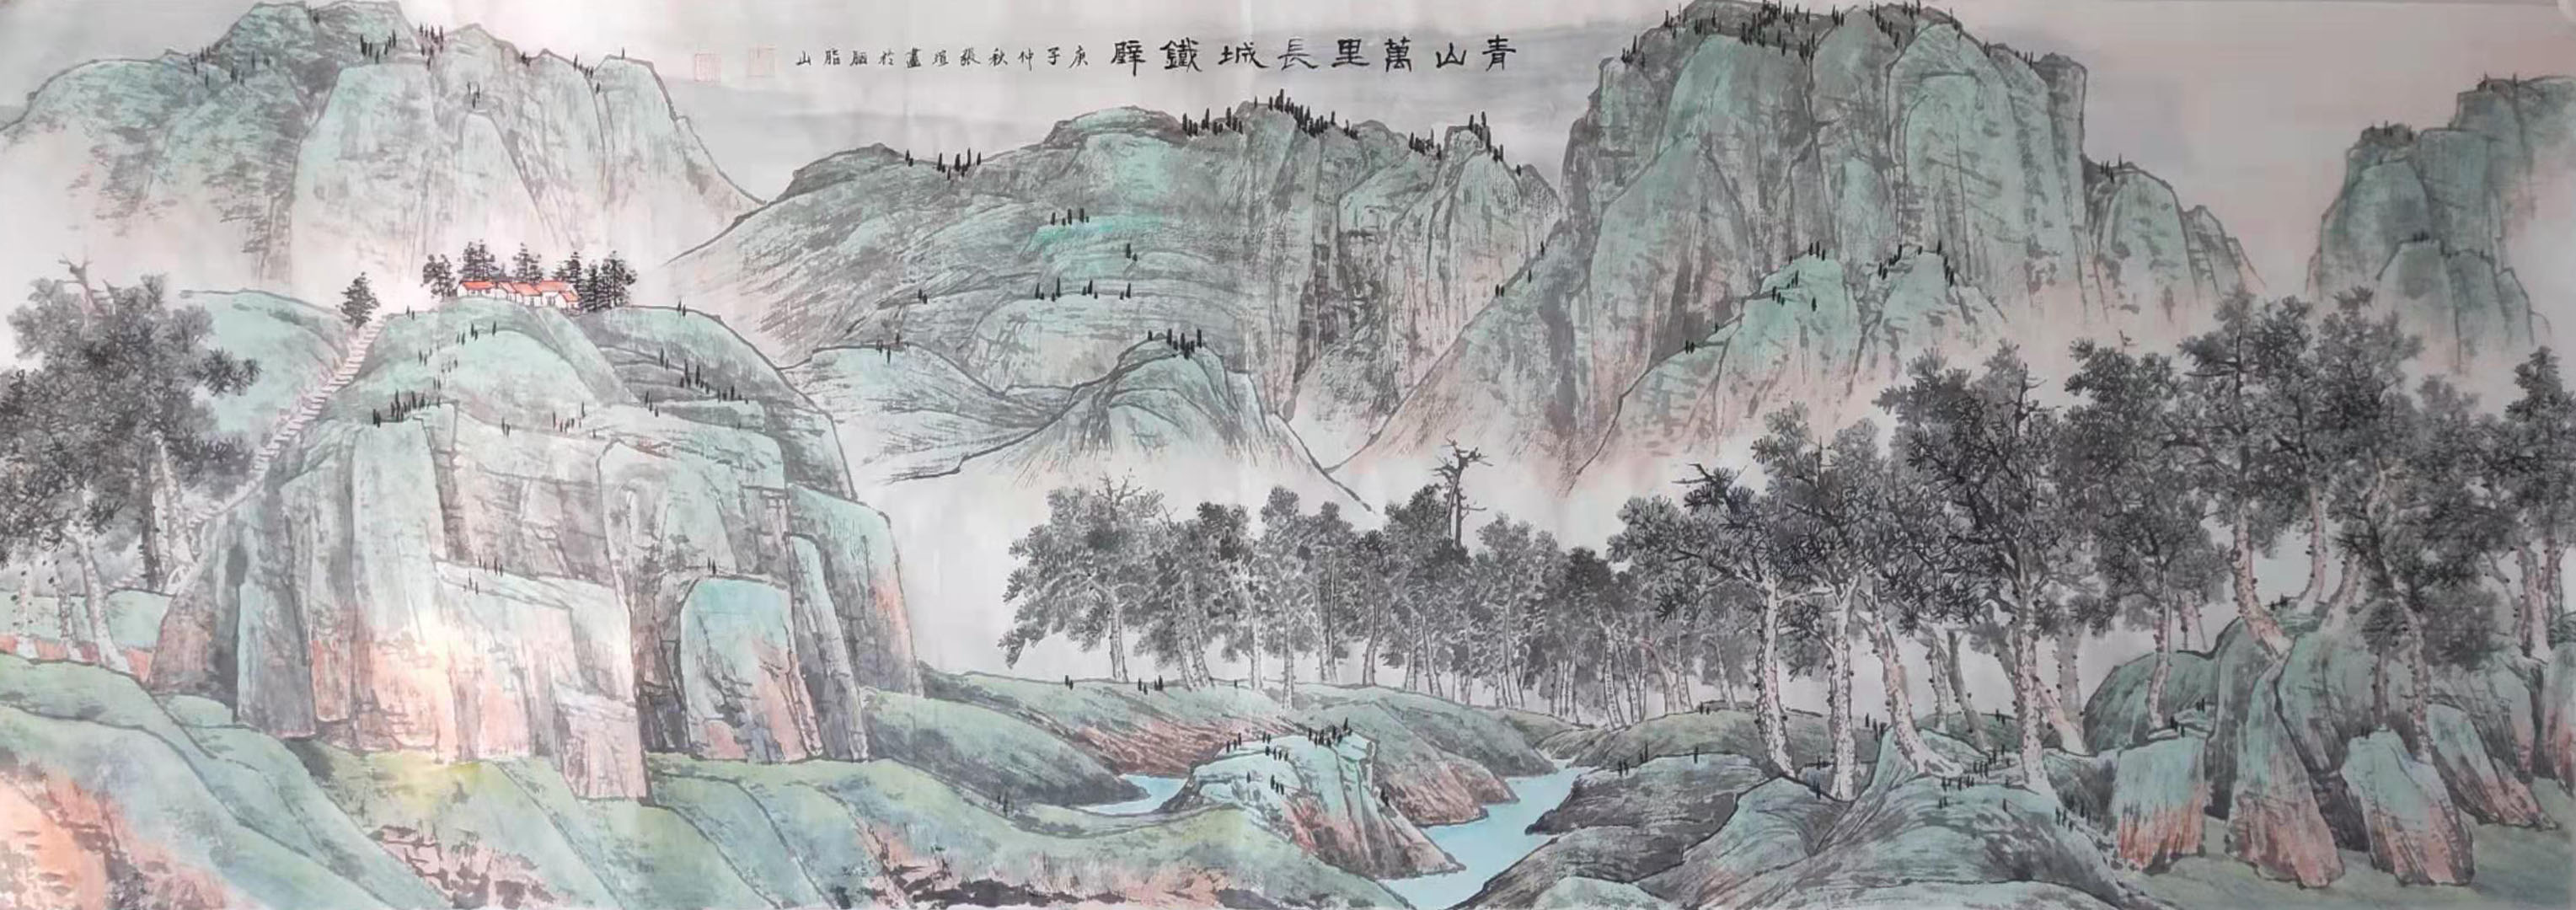 青山萬里長城鐵壁 庚子仲秋張畫於胭脂山